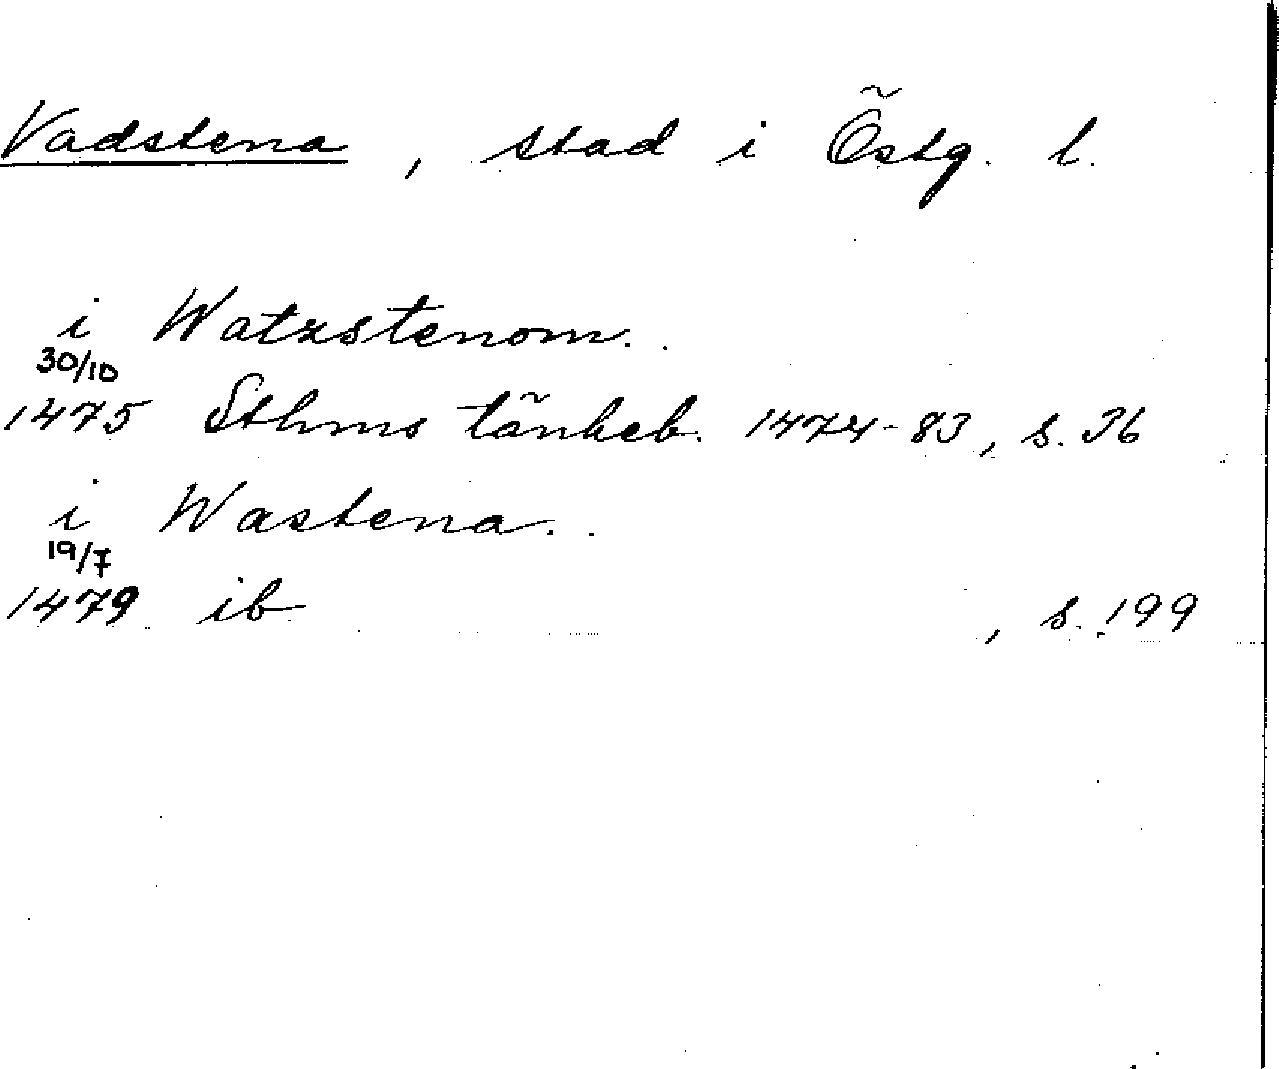 Vadstena, stad i Östg. l.
i Watzstenom.
30/10
1475 Sthms tänkeb. 1474-83, s. 36
i Wastena.
19/7
1479 ib , s. 199